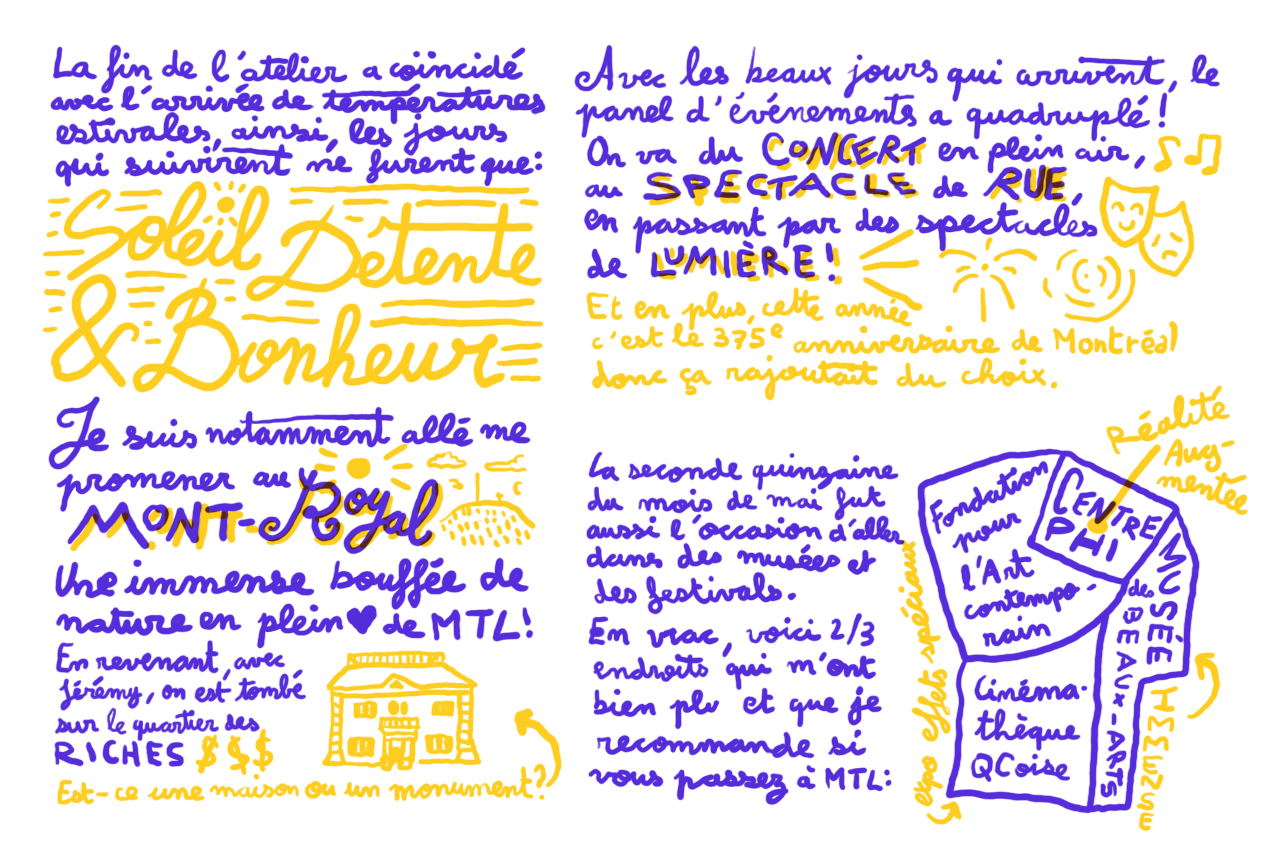 La fin de l'atelier a coïncidé
avec l'arrivée de températures
estivales, ainsi, les jours
qui suivirent ne furent que:
Soleil Détente
& Bonheur
Je suis notamment allé me
promener au
MONT-Royal
Une immense bouffée de
nature en plein ♥ de MTL!
En revenant, avec
Jérémy, on est tombé
sur le quartier des
RICHES $$$
Est-ce une maison ou un monument?
Avec les beaux jours qui arrivent, le
panel d'événements a quadruplé!
On va du CONCERT en plein air,
au SPECTACLE de RUE,
en passant par des spectacles
de LUMIÈRE!
Et en plus, cette année
c'est le 375e anniversaire de Montréal
donc ça rajoutait du choix.
La seconde quinzaine
du mois de mai fut
aussi l'occasion d'aller
dans des musées et
des festivals.
En vrac, voici 2/3
endroits qui m'ont
bien plu et que je
recommande si
vous passez à MTL:
Réalité
Aug-
mentée
CENTRE
PHI
Fondation
pour
l'Art
contempo-
rain
MUSÉE
des BEAUX-ARTS
Cinéma-
thèque
QCoise
expo effets spéciaux